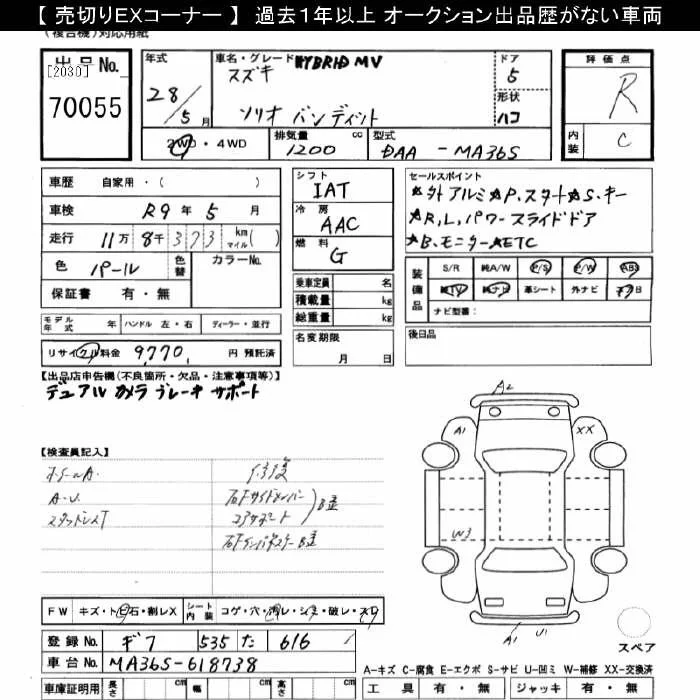 【 売切りEXコーナー 】 過去１年以上 オークション出品歴がない車両
(複合機)対応用紙
出品No. [2030] 70055
年式 28/5月
車名・グレード HYBRID MV
スズキ
ソリオ バンディット
ドア 5
形状 ハコ
評価点 R
内装 C
2WD・4WD
排気量 1200 cc
型式 DAA-MA36S
車歴 自家用・( )
車検 R9年5月
走行 11万8千373 km マイル( )
色 パール 色替 カラーNo.
保証書 有・無
シフト IAT
冷房 AAC
燃料 G
乗車定員 名
積載量 kg
総重量 kg
名変期限 月 日
セールスポイント
★外アルミ★P.スタート★S.キー
★R,L,パワースライドドア
★B.モニター★ETC
装備品 S/R 純A/W P/S P/W ABS
純TV 純ナビ 革シート 外ナビ
ナビ型番:
後日品
モデル年式 年 ハンドル 左・右 ディーラー・並行
リサイクル料金 9,770 円 預託済
【出品店申告機(不良箇所・欠品・注意事項等)】
デュアルカメラブレーキサポート
【検査員記入】
A.U.
スタッドレスT
修復
B歪
B歪
A2
A1
XX
W3
A1 U1
スペア
FW キズ・ト石・割レX シート内装 コゲ・穴・汚レ・シミ・破レ・スレ
登録No. ギフ 535 た 616
車台No. MA36S-618738
車庫証明用 長さ cm 幅 cm 高さ cm
A-キズ C-腐食 E-エクボ S-サビ U-凹ミ W-補修 XX-交換済
工具 有・無 ジャッキ 有・無